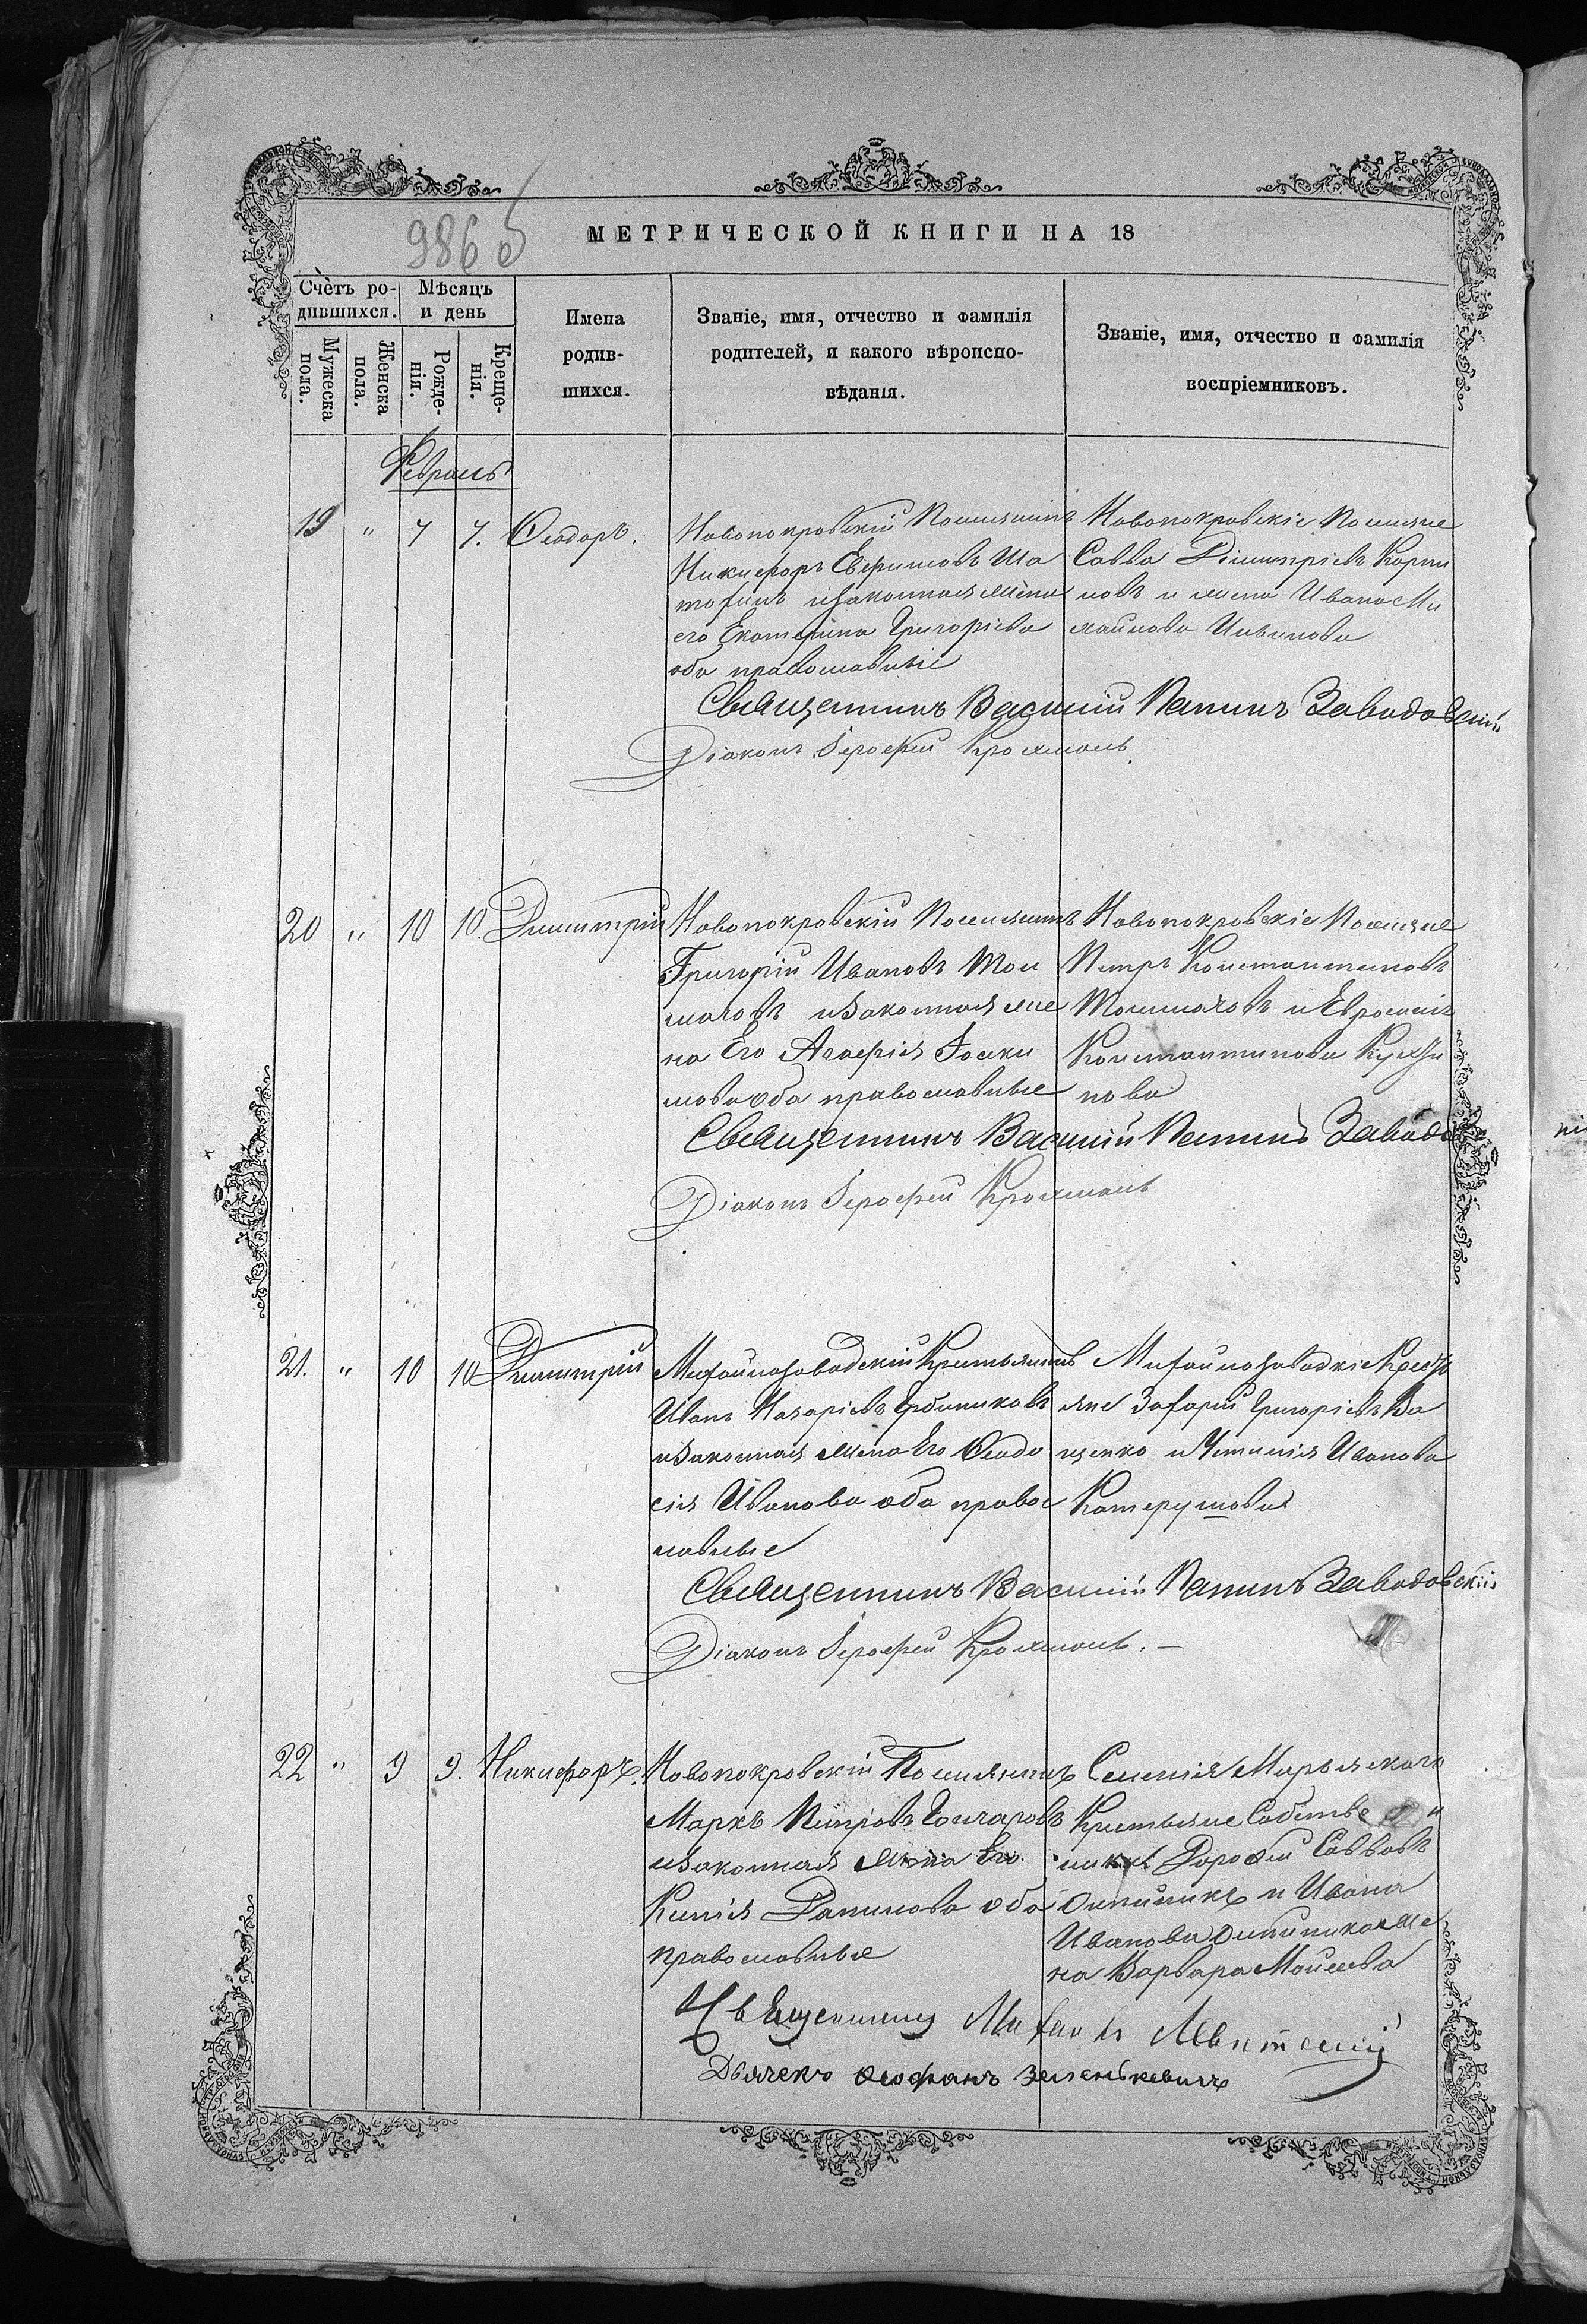 986 б
МЕТРИЧЕСКОЙ КНИГИ НА 18
Счетъ ро-
дившихся.
Мѣсяцъ
и день
Мужеска
пола.
Женска
пола.
Рожде-
нія.
Креще-
нія.
Имена
родив-
шихся.
Званіе, имя, отчество и фамилія
родителей, и какого вѣроиспо-
вѣданія.
Званіе, имя, отчество и фамилія
воспріемниковъ.
Февраль
19 " 7 7. Ѳеодоръ.
Новопокровскій Поселянинъ
Никифоръ Ефимовъ
и законная жена
его Екатерина Григоріева
оба православніе
Новопокровскіе Поселяне
Савва Димитріевъ
и жена Ивана Ми
хайлова
Священникъ Василій Панинъ Заводовскій
Діаконъ Іерофей Крохмаль.
20 " 10 10. Димитрій
Новопокровскій Поселянинъ
Григорій Ивановъ Тол
мачовъ и законная же
на Его Агафія Іоаки
мова оба православные
Новопокровскіе Поселяне
Петръ Константиновъ
Толмачовъ и Евфросинія
Константинова
Священникъ Василій Панинъ
Діаконъ Іерофей Крохмаль
21. " 10 10 Димитрій
Михайлозаводскій Крестьянинъ
Иванъ Назаріевъ
и законная жена Его Ѳеодо
сія Иванова оба правос
лавные
Михайлозаводскіе Кресть
яне Захарій Григоріевъ Ва
щенко и Устинія Иванова
Священникъ Василій Панинъ Заводовскій
Діаконъ Іерофей Крохмаль. —
22 " 9 9. Никифоръ.
Новопокровскій Поселянинъ
Маркъ Петровъ Гончаровъ
и законная жена Его
Ксенія Данилова оба
православные
Селенія Марьянскаго
Крестьяне Собстве
ники Дорофей Саввовъ
Олійникъ и Ивана
Иванова Олійника же
на Варвара Мойсеева
Священникъ Михаилъ
Дьячекъ Ѳеофанъ Зеленькевичъ